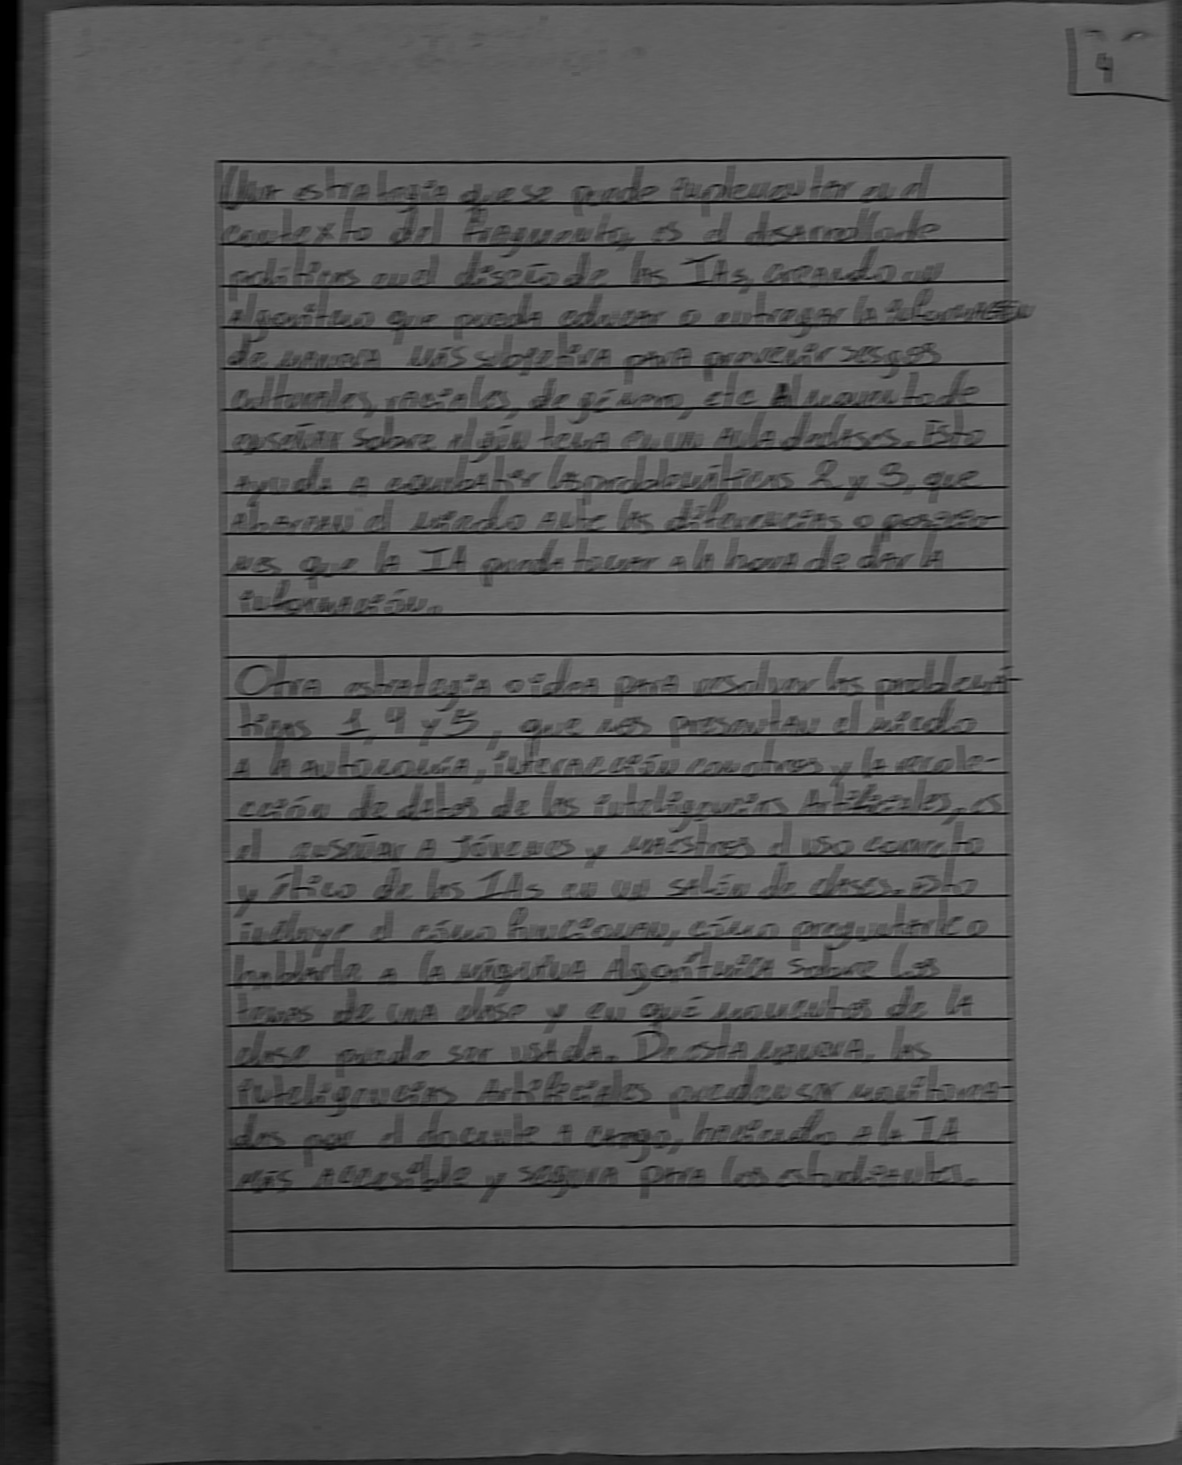 4
Una estrategia que se puede implementar en el
contexto del fragmento, es el desarrollo de
políticas en el diseño de las IAs, creando un
algoritmo que pueda educar o entregar la información
de manera más subjetiva para prevenir sesgos
culturales, raciales, de género, etc Al momento de
enseñar sobre algún tema en un aula de clases. Esto
ayuda a combatir las problemáticas 2 y 3, que
abarcan el miedo ante las diferencias o posicio-
nes que la IA puede tomar a la hora de dar la
información.
Otra estrategia o idea para resolver las problemá-
ticas 1, 4 y 5, que nos presentan el miedo
a la autonomía, interacción con otros y la recole-
cción de datos de las inteligencias Artificiales, es
el enseñar a Jóvenes y maestros el uso correcto
y ético de las IAs en un salón de clases. Esto
incluye el cómo funcionan, cómo preguntarle o
hablarle a la máquina Algorítmica sobre los
temas de una clase y en qué momentos de la
clase puede ser usada. De esta manera, las
inteligencias Artificiales pueden ser monitorea-
das por el docente a cargo, haciendo a la IA
más accesible y segura para los estudiantes.